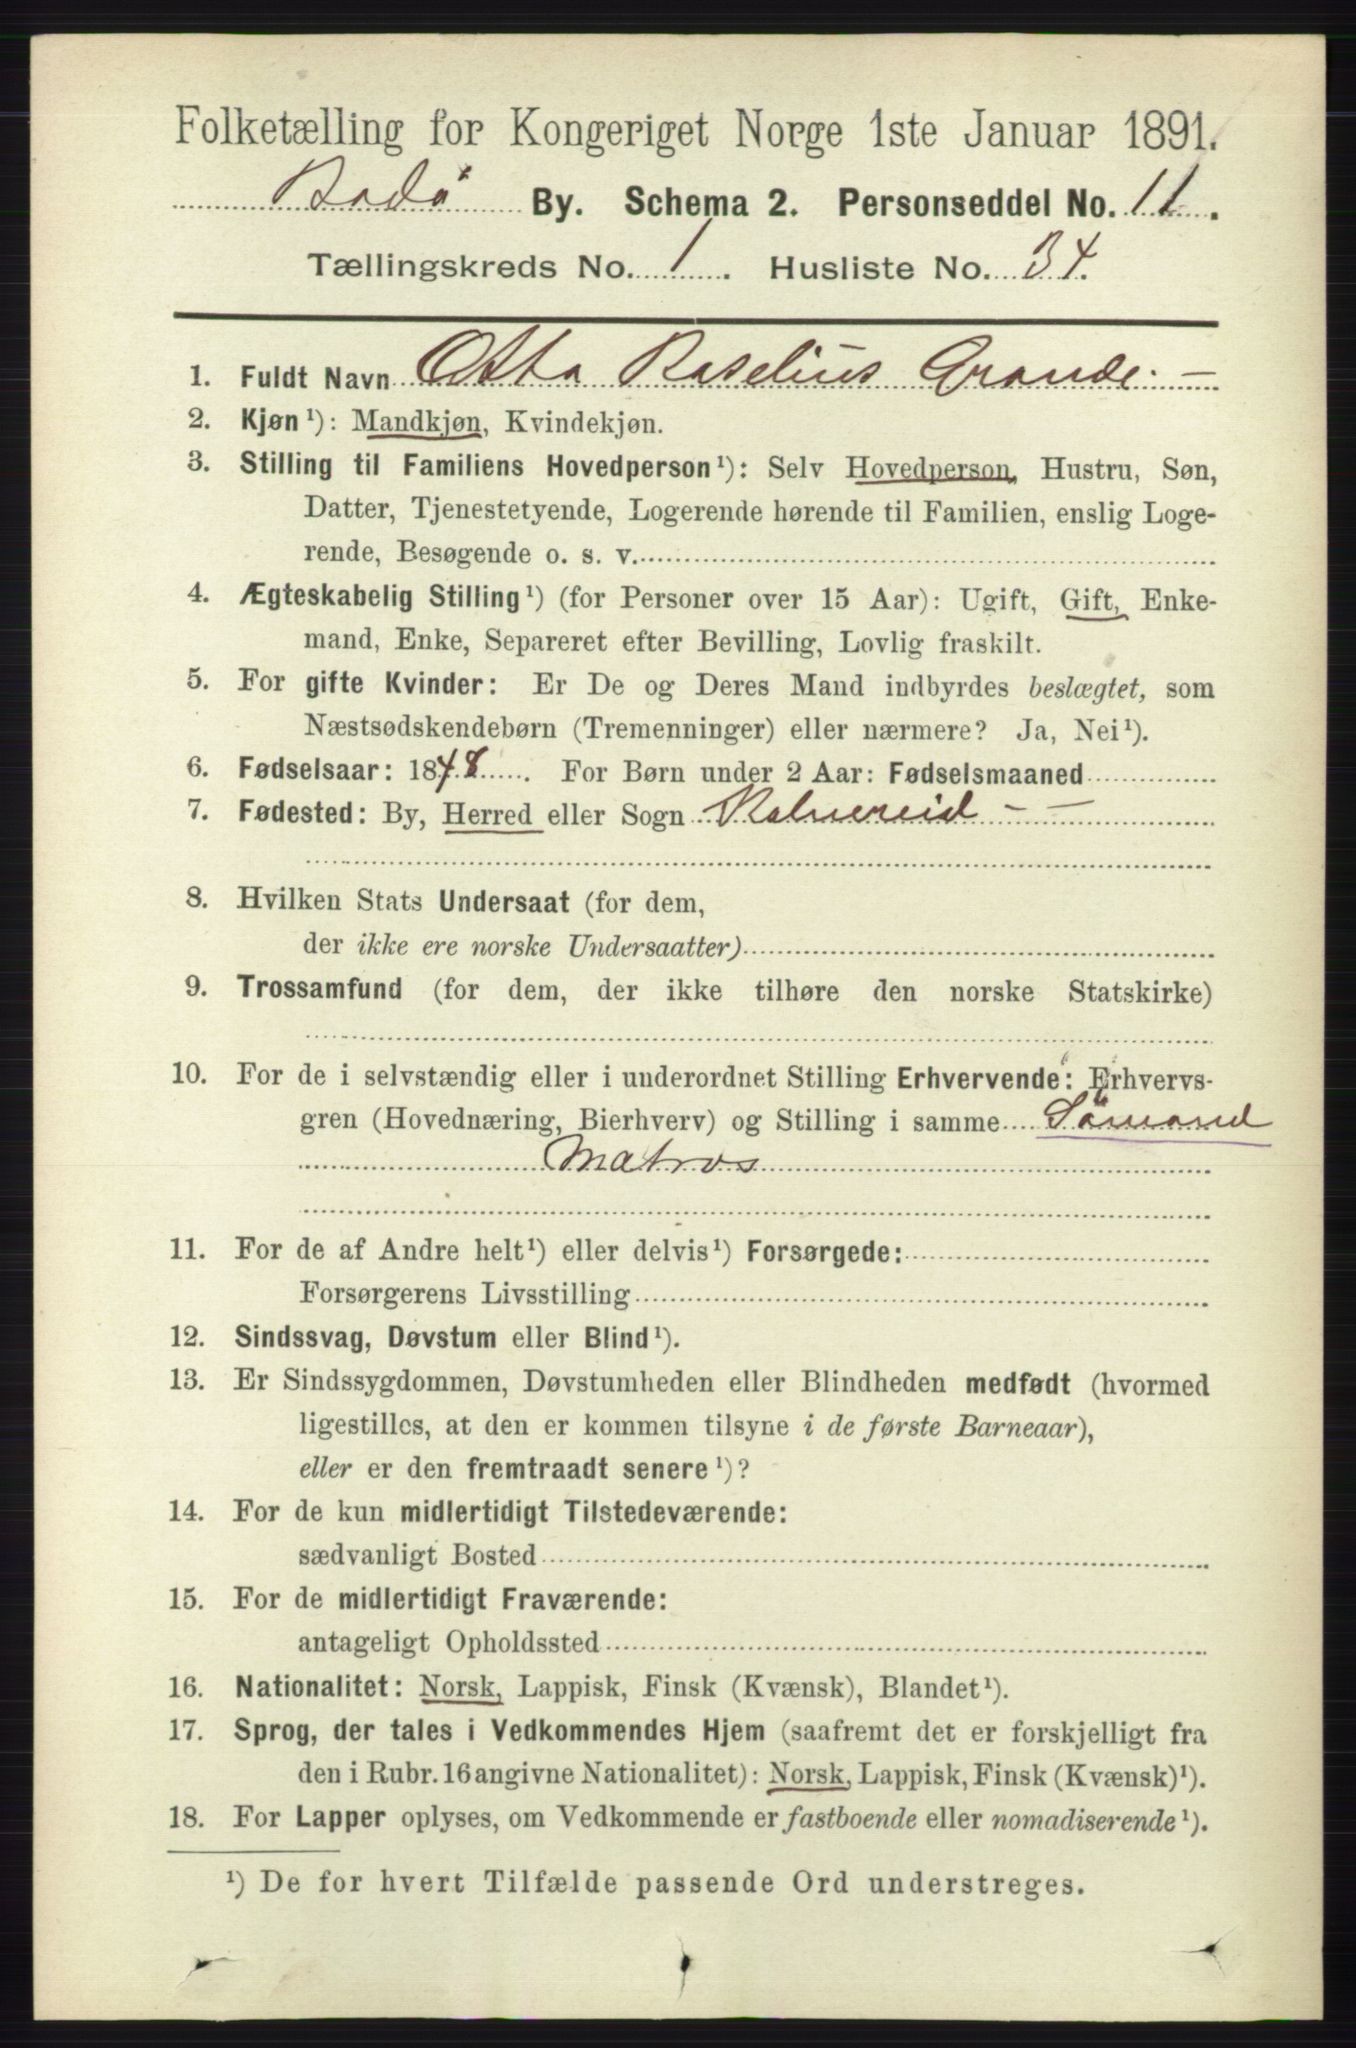 Folketælling for Kongeriget Norge 1ste Januar 1891.
Bodö By. Schema 2. Personseddel No. 11.
Tællingskreds No. 1. Husliste No. 34.
1. Fuldt Navn Otto Roselius Grande.
2. Kjøn¹): Mandkjøn, Kvindekjøn.
3. Stilling til Familiens Hovedperson¹): Selv Hovedperson, Hustru, Søn,
Datter, Tjenestetyende, Logerende hørende til Familien, enslig Loge-
rende, Besøgende o. s. v.
4. Ægteskabelig Stilling¹) (for Personer over 15 Aar): Ugift, Gift, Enke-
mand, Enke, Separeret efter Bevilling, Lovlig fraskilt.
5. For gifte Kvinder: Er De og Deres Mand indbyrdes beslægtet, som
Næstsødskendebørn (Tremenninger) eller nærmere? Ja, Nei¹).
6. Fødselsaar: 1848. For Børn under 2 Aar: Fødselsmaaned
7. Fødested: By, Herred eller Sogn Kolvereid - -
8. Hvilken Stats Undersaat (for dem,
der ikke ere norske Undersaatter)
9. Trossamfund (for dem, der ikke tilhøre den norske Statskirke)
10. For de i selvstændig eller i underordnet Stilling Erhvervende: Erhvervs-
gren (Hovednæring, Bierhverv) og Stilling i samme Sömand
Matros
11. For de af Andre helt¹) eller delvis¹) Forsørgede:
Forsørgerens Livsstilling
12. Sindssvag, Døvstum eller Blind¹).
13. Er Sindssygdommen, Døvstumheden eller Blindheden medfødt (hvormed
ligestilles, at den er kommen tilsyne i de første Barneaar),
eller er den fremtraadt senere¹)?
14. For de kun midlertidigt Tilstedeværende:
sædvanligt Bosted
15. For de midlertidigt Fraværende:
antageligt Opholdssted
16. Nationalitet: Norsk, Lappisk, Finsk (Kvænsk), Blandet¹).
17. Sprog, der tales i Vedkommendes Hjem (saafremt det er forskjelligt fra
den i Rubr. 16 angivne Nationalitet): Norsk, Lappisk, Finsk (Kvænsk)¹).
18. For Lapper oplyses, om Vedkommende er fastboende eller nomadiserende¹).
¹) De for hvert Tilfælde passende Ord understreges.